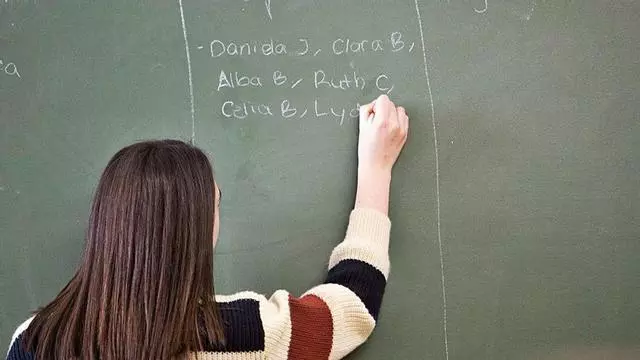 a
- Daniela J, Clara B,
Alba B, Ruth C,
Celia B, Lyd